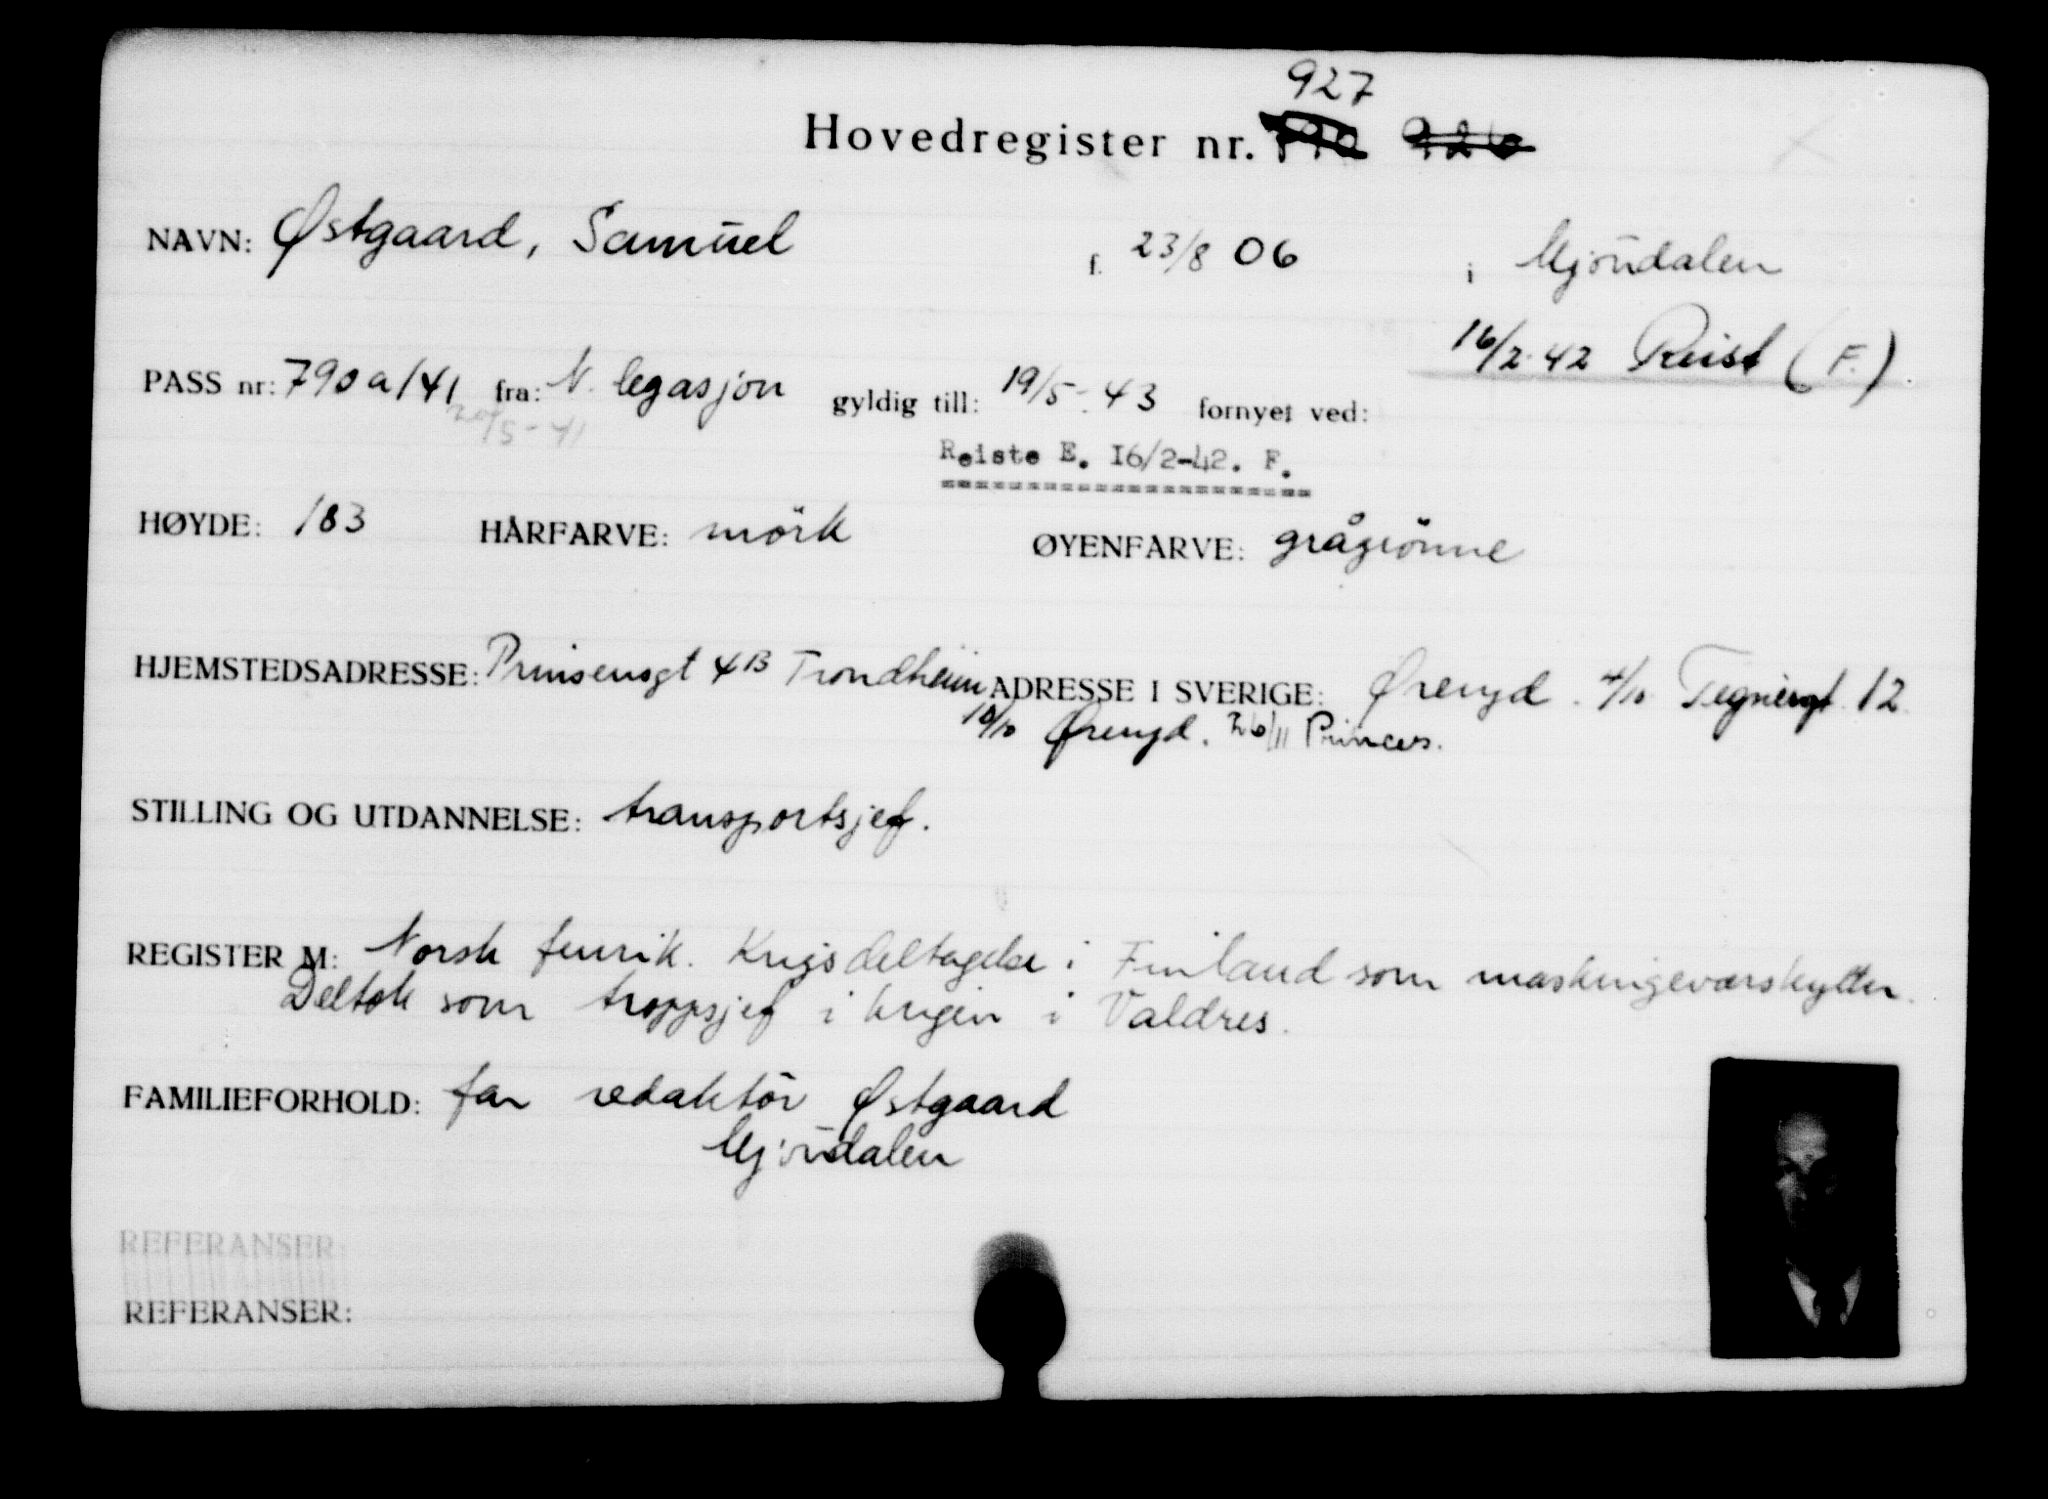 927
Hovedregister nr. 926
NAVN: Østgaard, Samuel f. 23/8 06 i Mjöndalen
16/2-42 Reist (F.)
PASS nr: 790a/41 fra: N. legasjon gyldig till: 19/5-43 fornyet ved:
20/5-41
Reiste E. 16/2-42. F.
HØYDE: 183 HÅRFARVE: mörk ØYENFARVE: grågrönne
HJEMSTEDSADRESSE: Prinsensgt 4B Trondheim ADRESSE I SVERIGE: Öreryd. 4/10 Tegnérgt. 12.
10/10 Öreryd. 26/11 Princess.
STILLING OG UTDANNELSE: transportsjef.
REGISTER M: Norsk fenrik. Krigsdeltagelse i Finland som maskingeværskytter.
Deltok som troppsjef i krigen i Valdres.
FAMILIEFORHOLD: far redaktör Østgaard
Mjöndalen
REFERANSER:
REFERANSER: